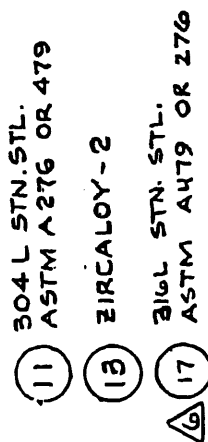 11 304 L STN. STL.
ASTM A276 OR 479
13 ZIRCALOY-2
6 17 316L STN. STL.
ASTM A479 OR 276